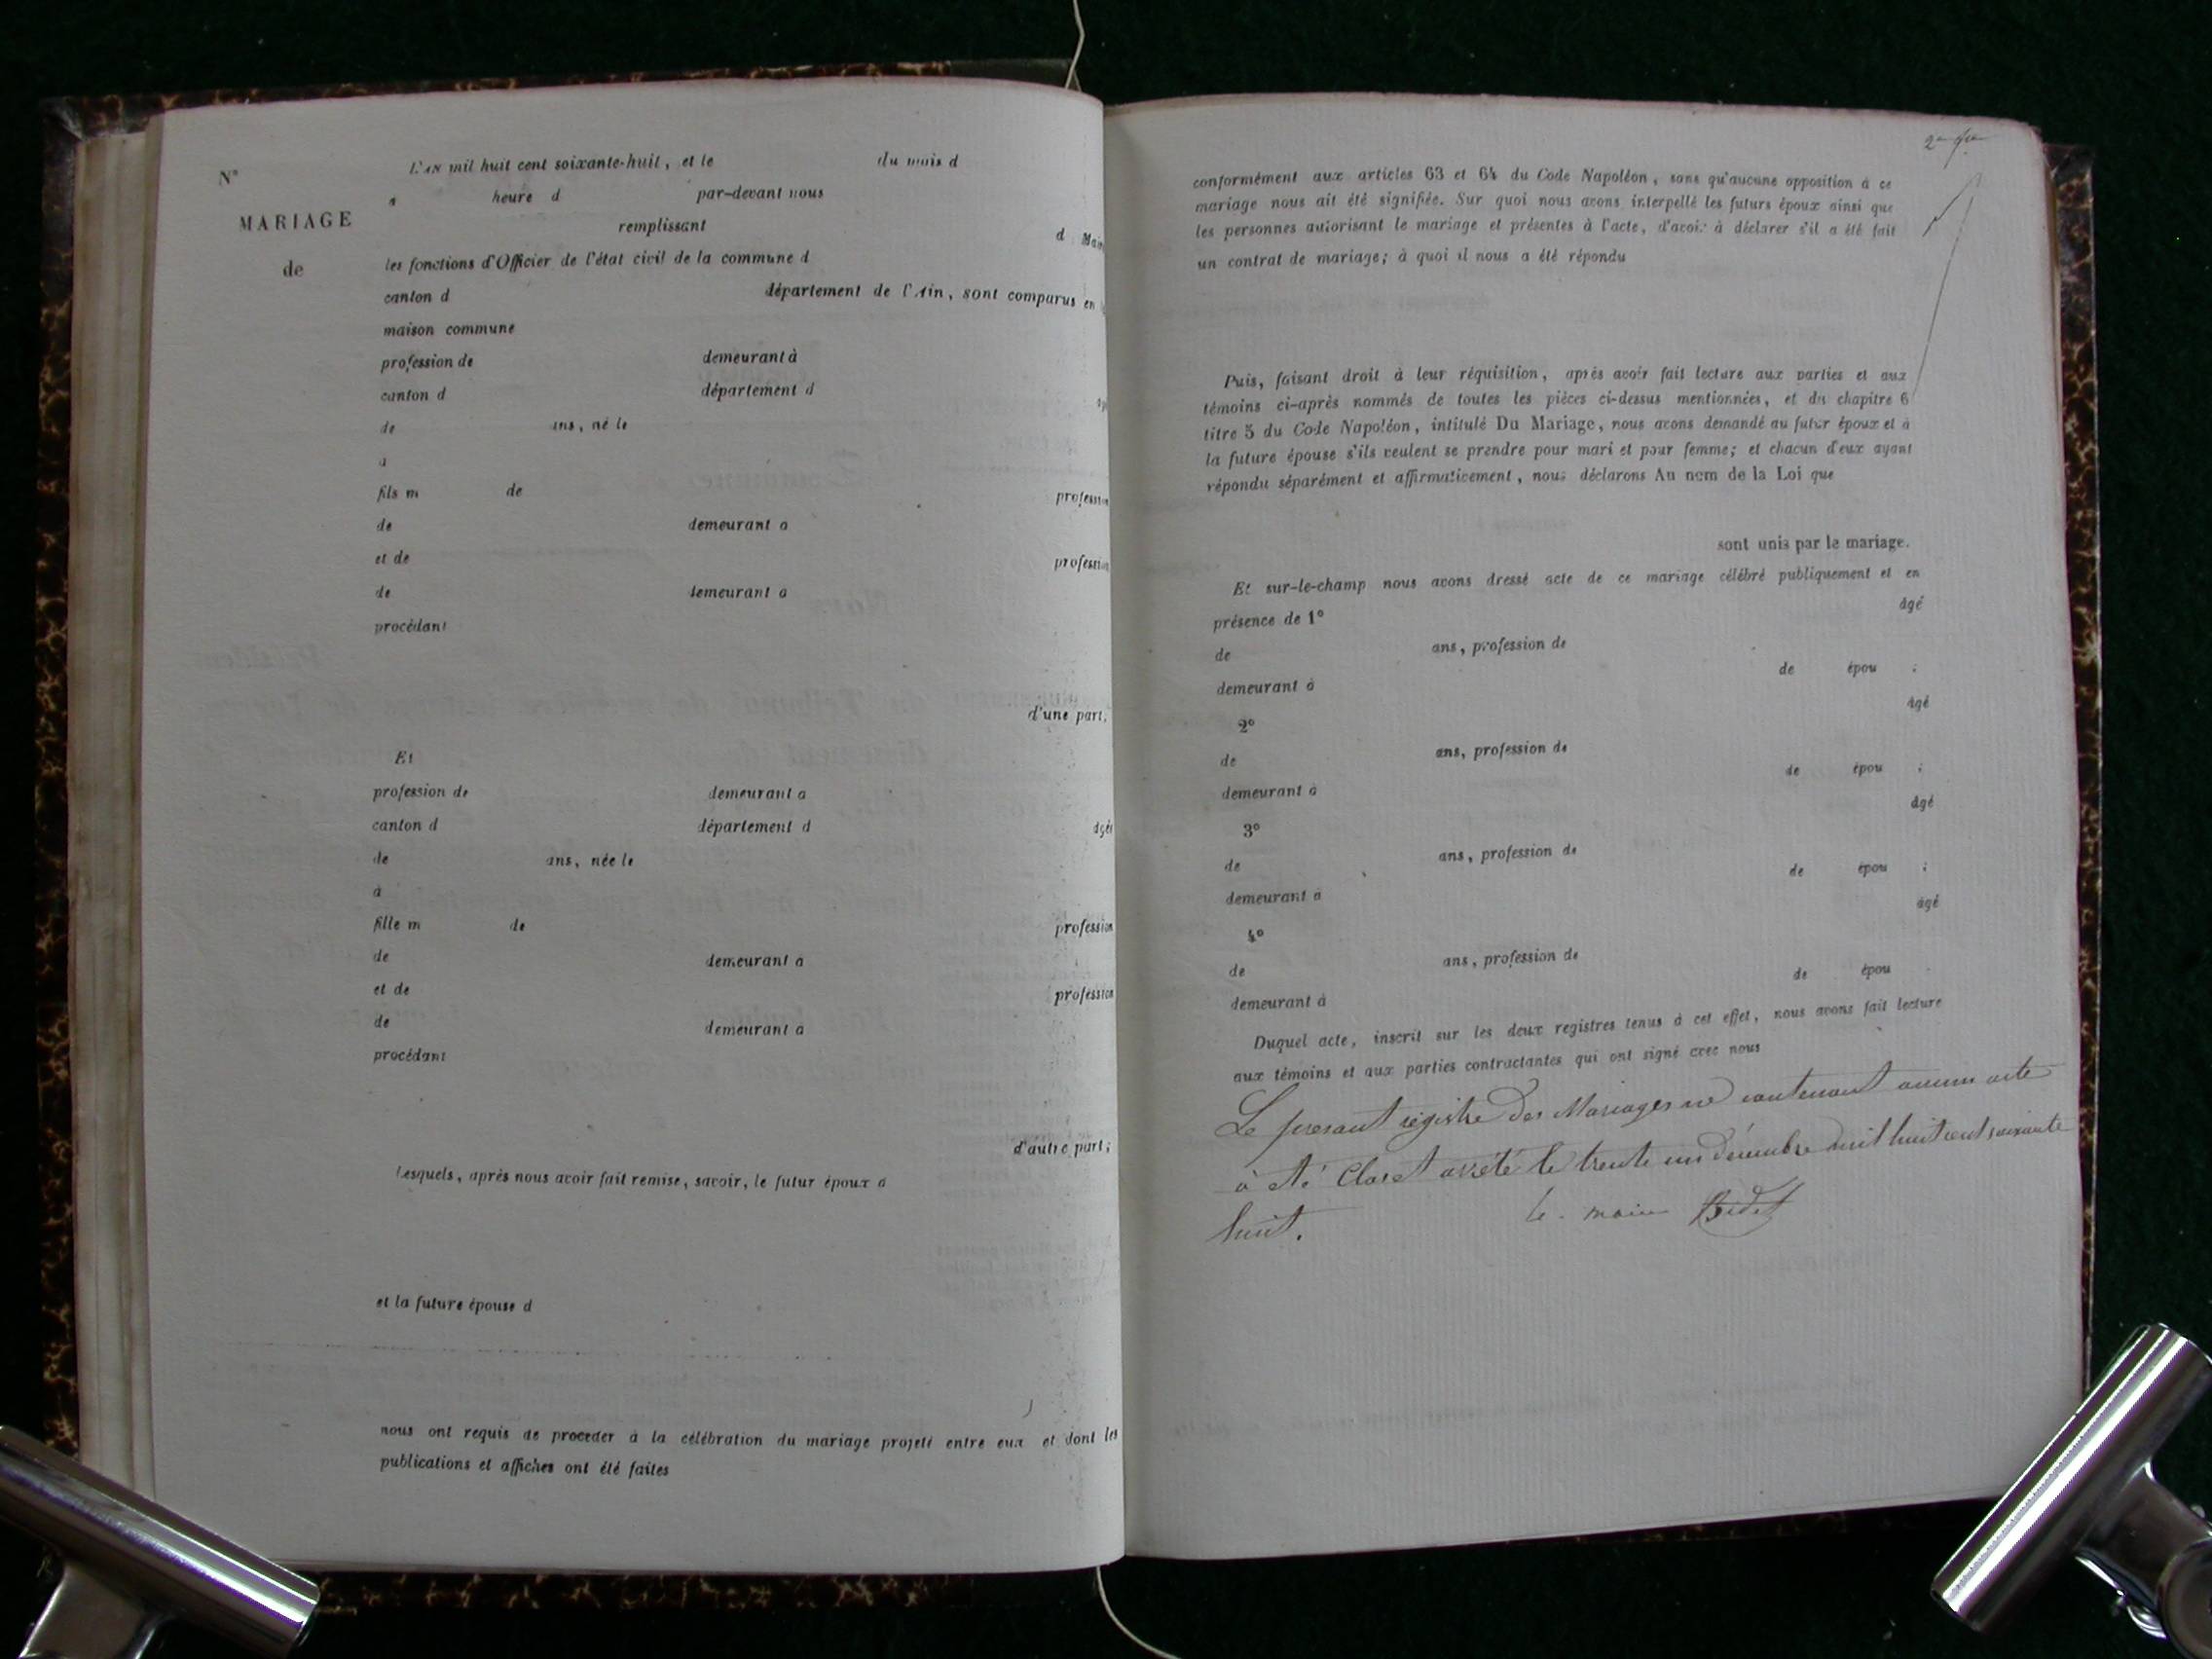 N°
MARIAGE
de
L'AN mil huit cent soixante-huit, et le du mois d
à heure d par-devant nous
remplissant
d Maire
les fonctions d'Officier de l'état civil de la commune d
canton d département de l'Ain, sont comparus en
maison commune
profession de demeurant à
canton d département d
de ans, né le
à
fils m de profession
de demeurant à
et de profession
de demeurant à
procédant
d'une part,
Et
profession de demeurant à
canton d département d âgée
de ans, née le
à
fille m de profession
de demeurant à
et de profession
de demeurant à
procédant
d'autre part;
Lesquels, après nous avoir fait remise, savoir, le futur époux d
et la future épouse d
nous ont requis de procéder à la célébration du mariage projeté entre eux et dont les
publications et affiches ont été faites
conformément aux articles 63 et 64 du Code Napoléon, sans qu'aucune opposition à ce
mariage nous ait été signifiée. Sur quoi nous avons interpellé les futurs époux ainsi que
les personnes autorisant le mariage et présentes à l'acte, d'avoir à déclarer s'il a été fait
un contrat de mariage; à quoi il nous a été répondu
Puis, faisant droit à leur réquisition, après avoir fait lecture aux parties et aux
témoins ci-après nommés de toutes les pièces ci-dessus mentionnées, et du chapitre 6
titre 5 du Code Napoléon, intitulé Du Mariage, nous avons demandé au futur époux et à
la future épouse s'ils veulent se prendre pour mari et pour femme; et chacun d'eux ayant
répondu séparément et affirmativement, nous déclarons Au nom de la Loi que
sont unis par le mariage.
Et sur-le-champ nous avons dressé acte de ce mariage célébré publiquement et en
présence de 1° âgé
de ans, profession de
demeurant à de épou ;
2° âgé
de ans, profession de
demeurant à de épou ;
3° âgé
de ans, profession de
demeurant à de épou ;
4° âgé
de ans, profession de
demeurant à de épou
Duquel acte, inscrit sur les deux registres tenus à cet effet, nous avons fait lecture
aux témoins et aux parties contractantes qui ont signé avec nous
Le présent registre des Mariages ne contenant aucun acte
à été Clos et arrêté le trente un décembre mil huit cent soixante
huit. Le maire Bidet